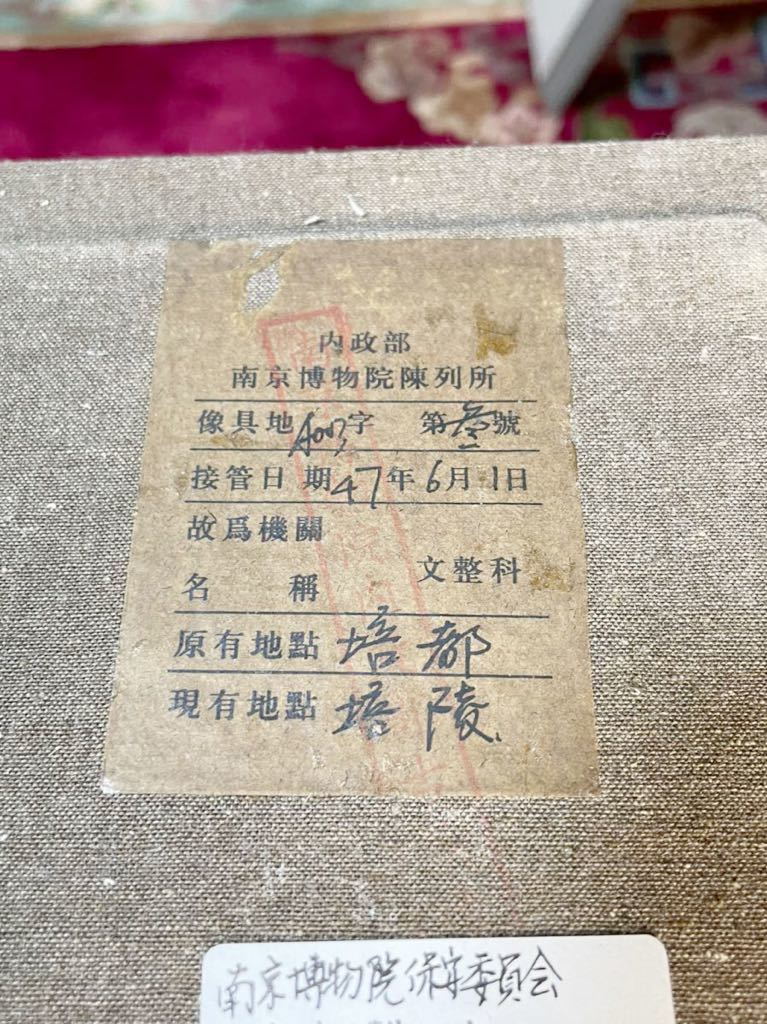 内政部
南京博物院陳列所
像具地 字 第叁號
接管日期47年6月1日
故爲機關
文整科
名 稱
原有地點 培都
現有地點 培陵
南京博物院保守委員会